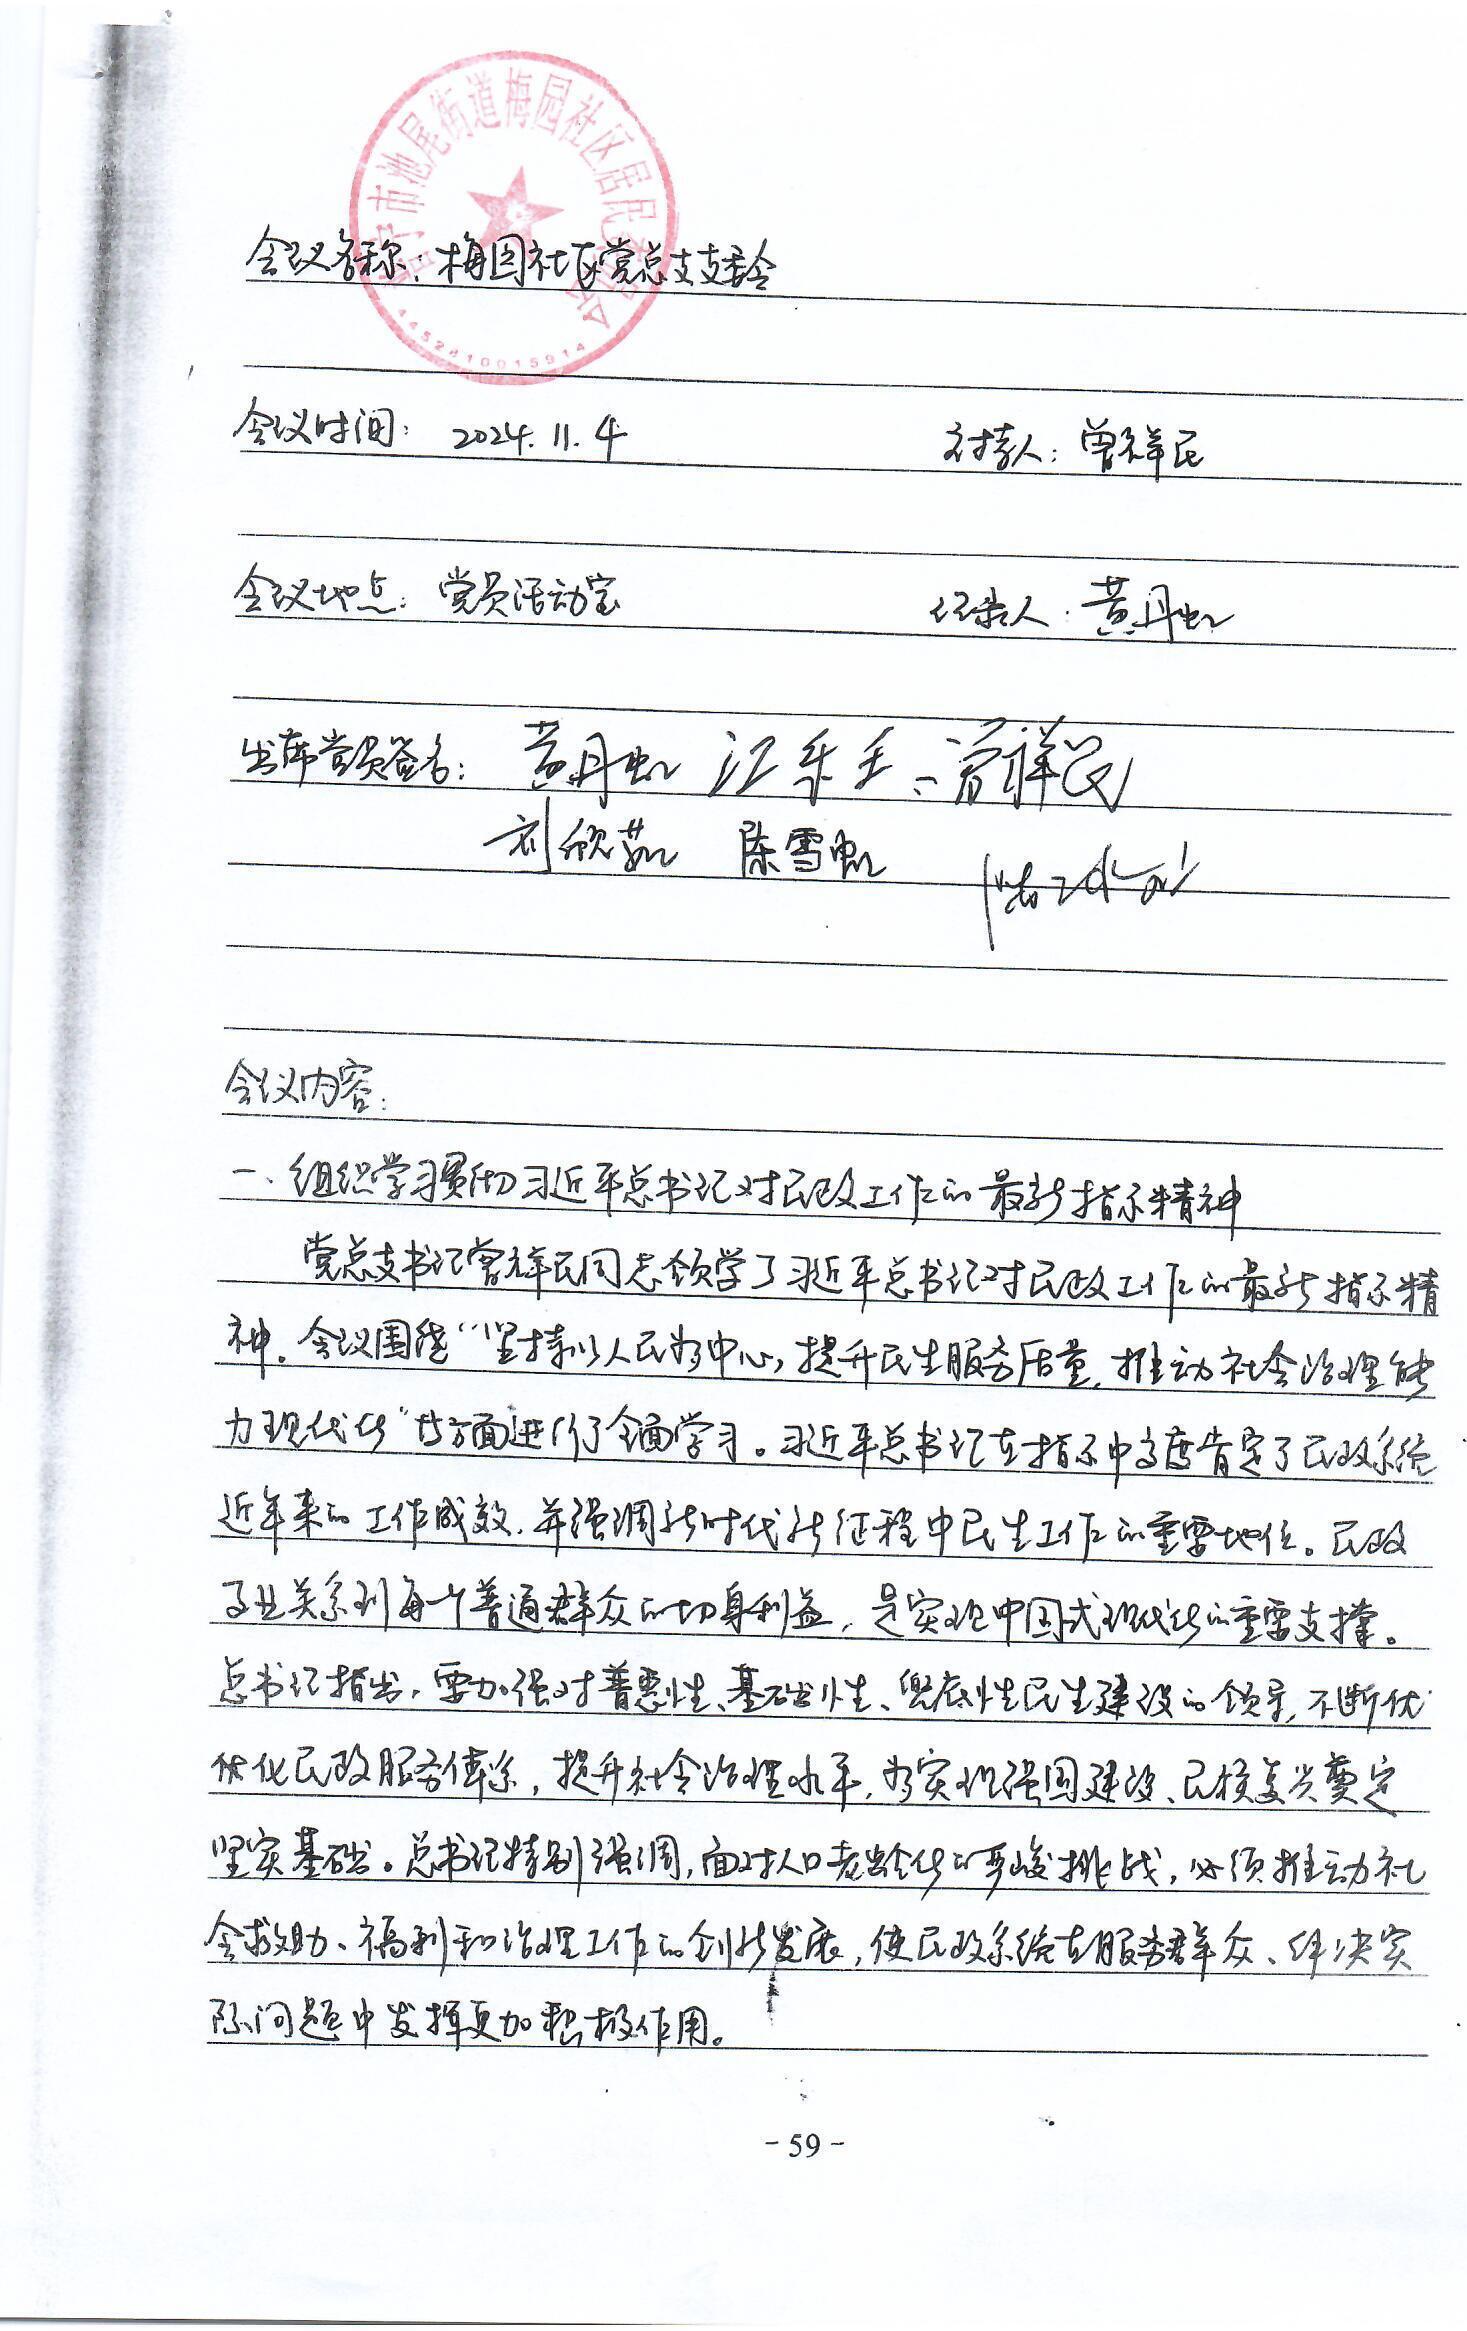 普宁市池尾街道梅园社区居民委员会
4452810015914
会议名称：梅园社区党总支支委会
会议时间： 2024.11.4 主持人：曾祥民
会议地点：党员活动室 记录人：黄丹虹
出席党员签名：黄丹虹 江乐 曾祥民
刘欣茹 陈雪虹
会议内容：
一、组织学习贯彻习近平总书记对民政工作的最新指示精神
党总支书记曾祥民同志领学了习近平总书记对民政工作的最新指示精
神。会议围绕“坚持以人民为中心，提升民生服务质量，推动社会治理能
力现代化”等方面进行了全面学习。习近平总书记在指示中高度肯定了民政系统
近年来的工作成效，并强调新时代新征程中民生工作的重要地位。民政
事业关系到每一个普通群众的切身利益，是实现中国式现代化的重要支撑。
总书记指出，要加强对普惠性、基础性、兜底性民生建设的领导，不断优
优化民政服务体系，提升社会治理水平，为实现强国建设、民族复兴奠定
坚实基础。总书记特别强调，面对人口老龄化的严峻挑战，必须推动社
会救助、福利和治理工作的创新发展，使民政系统在服务群众、解决实
际问题中发挥更加积极作用。
- 59 -